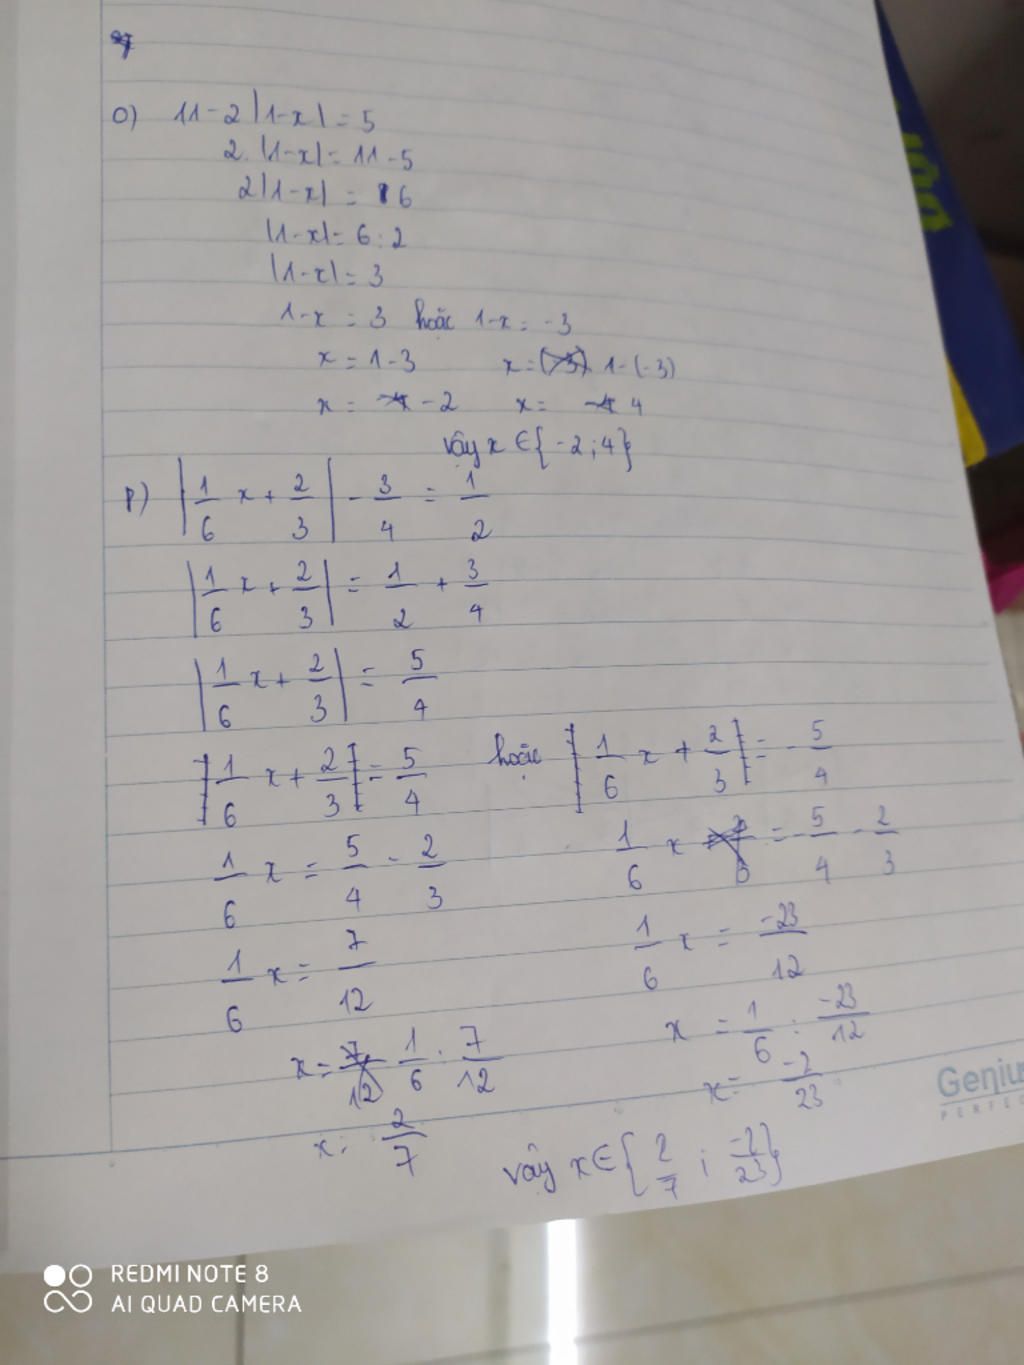 o) 11 - 2|1-x| = 5
2.|1-x| = 11 - 5
2|1-x| = 6
|1-x| = 6:2
|1-x| = 3
1-x = 3 hoặc 1-x = -3
x = 1-3 x = 1-(-3)
x = -2 x = 4
vậy x ∈ {-2; 4}
p) |1/6 x + 2/3| - 3/4 = 1/2
|1/6 x + 2/3| = 1/2 + 3/4
|1/6 x + 2/3| = 5/4
1/6 x + 2/3 = 5/4 hoặc 1/6 x + 2/3 = -5/4
1/6 x = 5/4 - 2/3 1/6 x = -5/4 - 2/3
1/6 x = 7/12 1/6 x = -23/12
x = 1/6 : 7/12 x = 1/6 : -23/12
x = 2/7 x = -2/23
vậy x ∈ {2/7 ; -2/23}
Geniu
PERFEC
REDMI NOTE 8
AI QUAD CAMERA